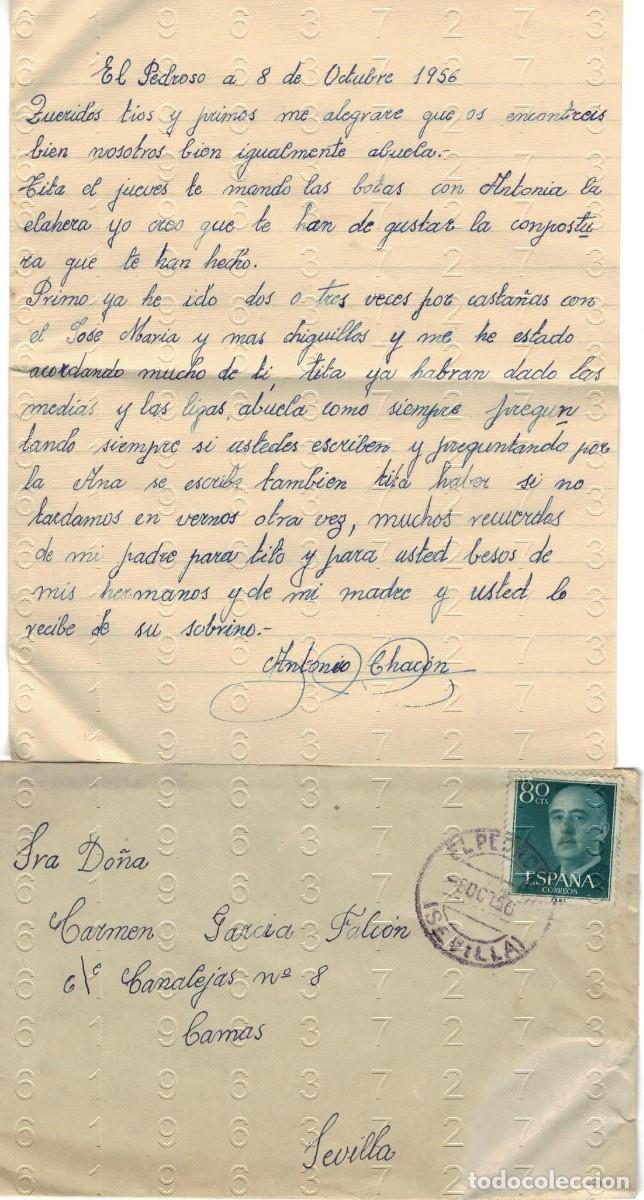 El Pedroso a 8 de Octubre 1956
Queridos tios y primos me alegrare que os encontreis
bien nosotros bien igualmente abuela.-
Tita el jueves te mando las botas con Antonia la
elahera yo creo que te han de gustar la conpostu
ra que te han hecho.
Primo ya he ido dos o tres veces por castañas con
el Jose Maria y mas chiguillos y me he estado
acordando mucho de ti, tita ya habran dado las
medias y las ligas, abuela como siempre pregun
tando siempre si ustedes escriben y preguntando por
la Ana se escribe tambien tita haber si no
tardamos en vernos otra vez, muchos recuerdos
de mi padre para tito y para usted besos de
mis hermanos y de mi madre y usted lo
recibe de su sobrino.-
Antonio Chacón
80
CTS
ESPAÑA
CORREOS
EL PEDROSO
OCT 56
(SEVILLA)
Sra Doña
Carmen Garcia Falcón
c/c Canalejas nº 8
Camas
Sevilla
todocoleccion
6 1 9 6 3 7 2 7 3